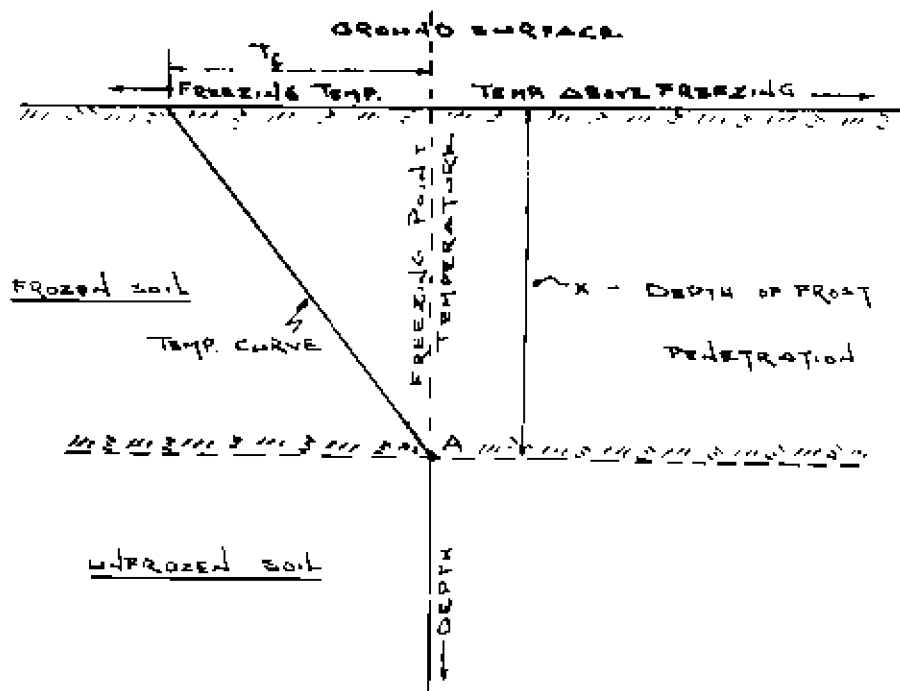 GROUND SURFACE
FREEZING TEMP.
TEMP. ABOVE FREEZING
FREEZING POINT
TEMPERATURE
FROZEN SOIL
X - DEPTH OF FROST
PENETRATION
TEMP. CURVE
A
UNFROZEN SOIL
DEPTH